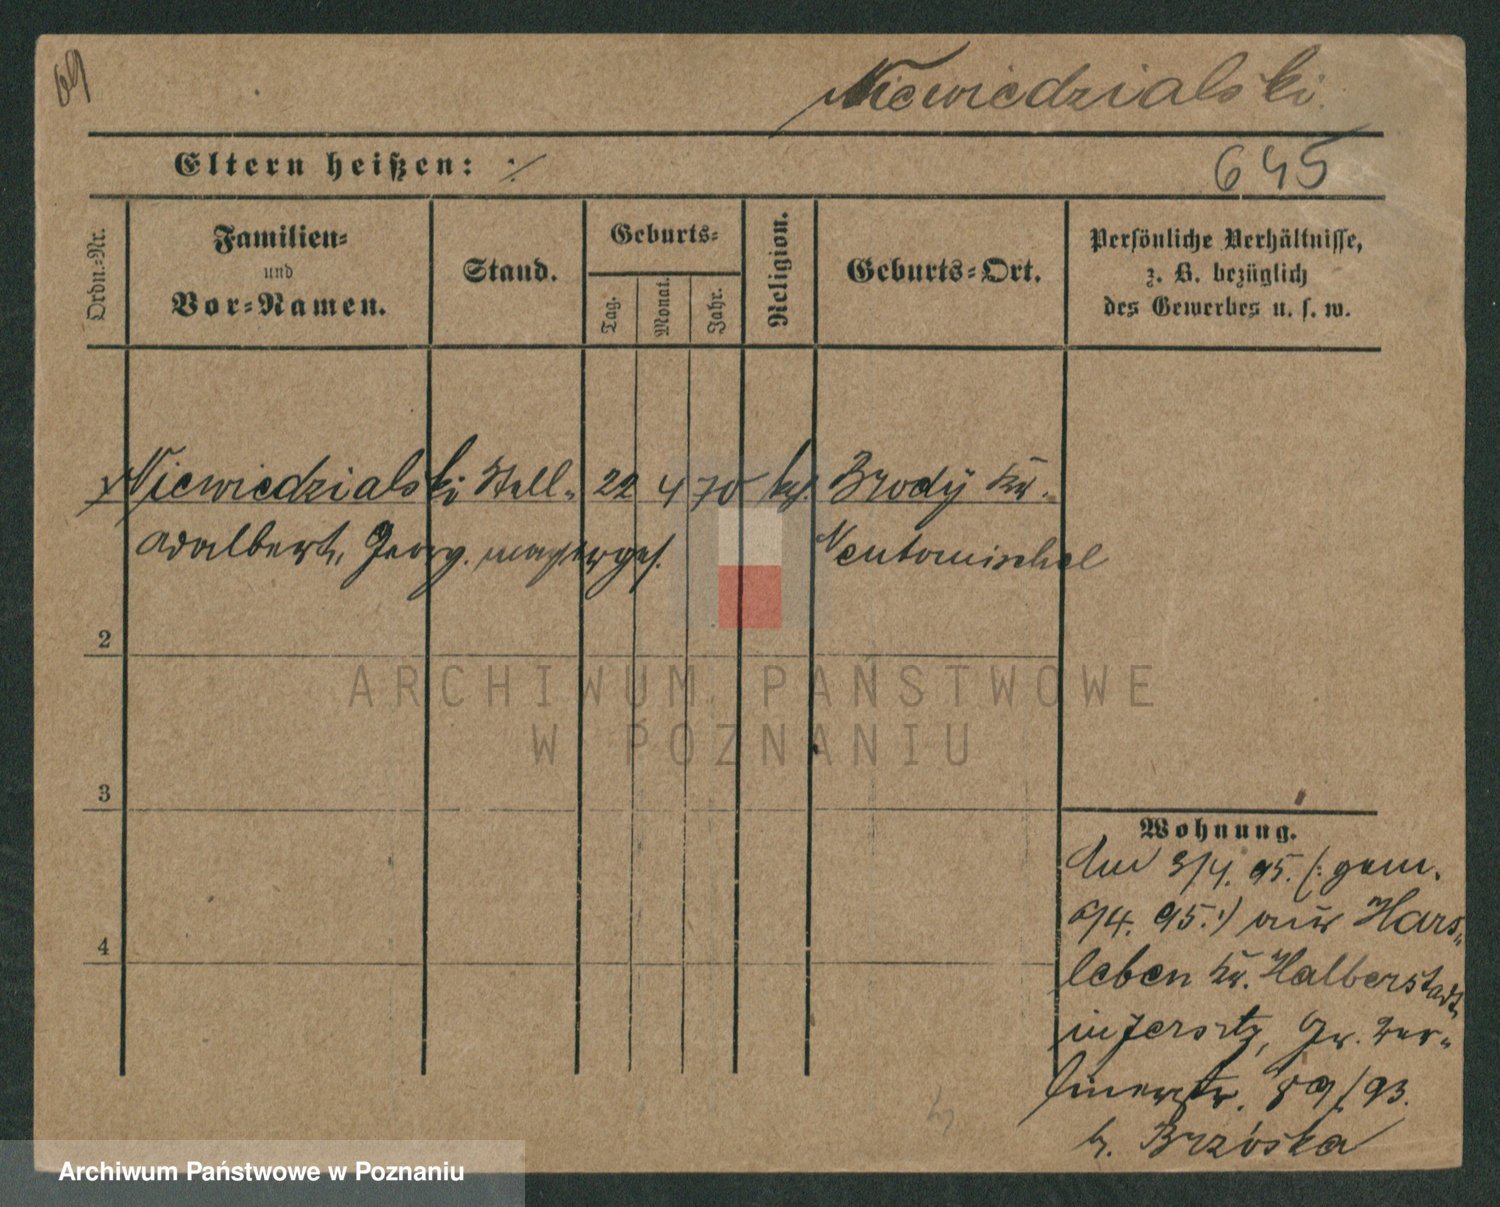 69
Niewiedzialski.
Eltern heißen: ·/·
645
Ordn.=Nr.
Familien=
und
Vor=Namen.
Stand.
Geburts=
Tag.
Monat.
Jahr.
Religion.
Geburts=Ort.
Persönliche Verhältnisse,
z. B. bezüglich
des Gewerbes u. s. w.
Niewiedzialski Stell= 22 4 70 Brody Kr.
Adalbert, Georg. Neutomischel
2
3
4
ARCHIWUM PAŃSTWOWE
W POZNANIU
Wohnung.
Am 3/4. 95. (: gem.
6/4. 95. :) aus Hars=
leben Kr. Halberstadt
in Jersitz, Gr. Ber=
linerstr. 89/93.
b. Brzóska
Archiwum Państwowe w Poznaniu